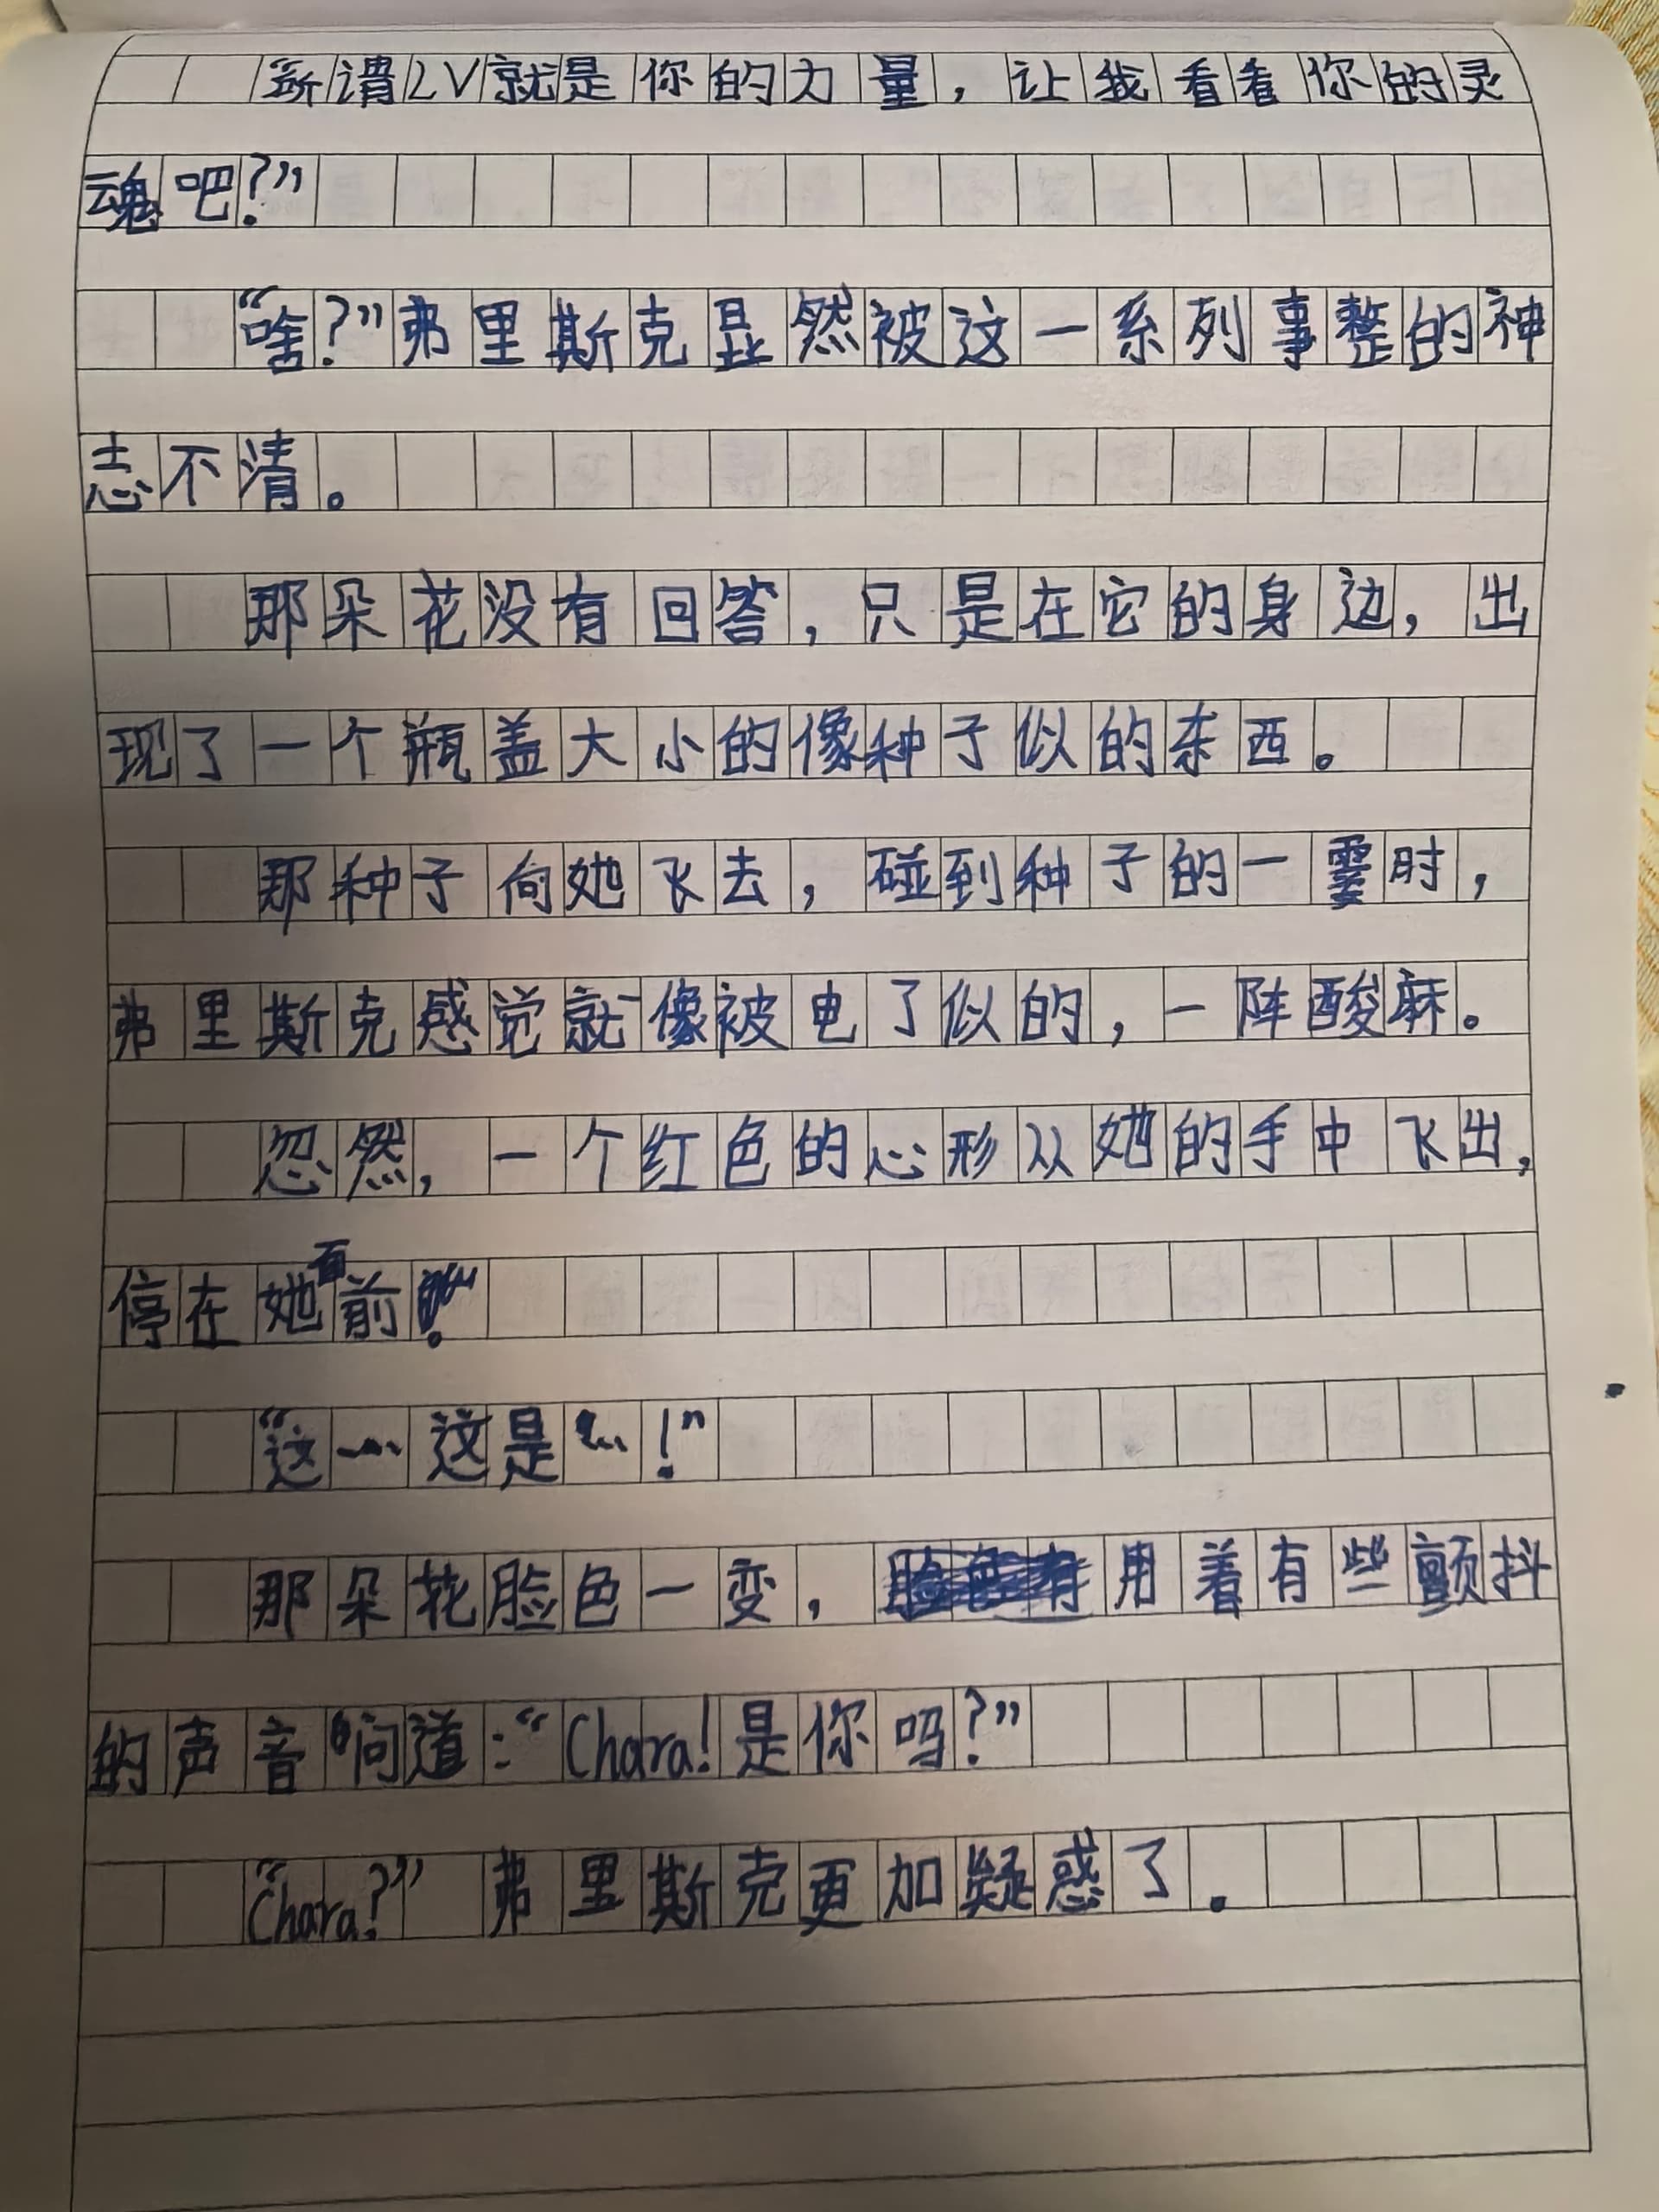 所谓LV就是你的力量，让我看看你的灵
魂吧？”
“啥？”弗里斯克显然被这一系列事整的神
志不清。
那朵花没有回答，只是在它的身边，出
现了一个瓶盖大小的像种子似的东西。
那种子向她飞去，碰到种子的一霎时，
弗里斯克感觉就像被电了似的，一阵酸麻。
忽然，一个红色的心形从她的手中飞出，
停在她面前！
“这…这是…！”
那朵花脸色一变，用着有些颤抖
的声音问道：“Chara！是你吗？”
“Chara？”弗里斯克更加疑惑了.